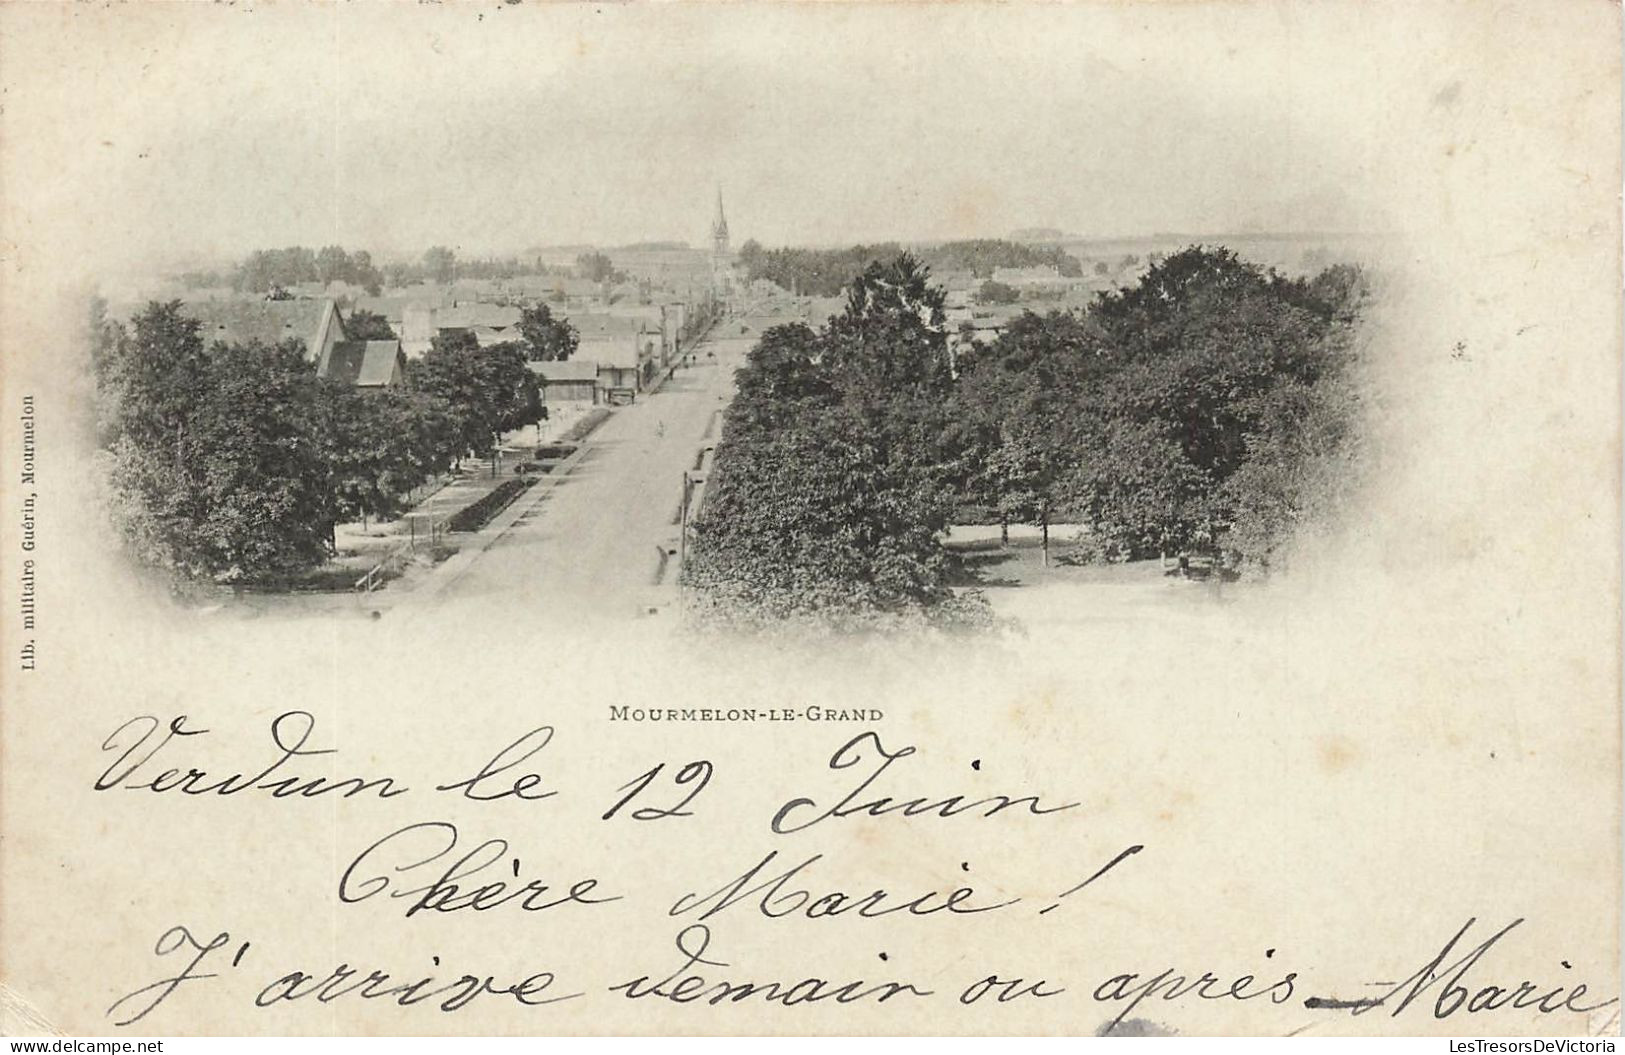 Lib. militaire Guérin, Mourmelon
MOURMELON-LE-GRAND
Verdun le 12 Juin
Chère Marie !
J'arrive demain ou après - Marie
www.delcampe.net
LesTresorsDeVictoria